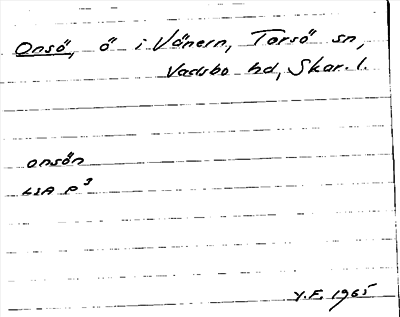 Onsö, ö i Vänern, Torsö sn,
Vadsbo hd, Skar. l.
onsön
LSA P³
Y.F. 1965